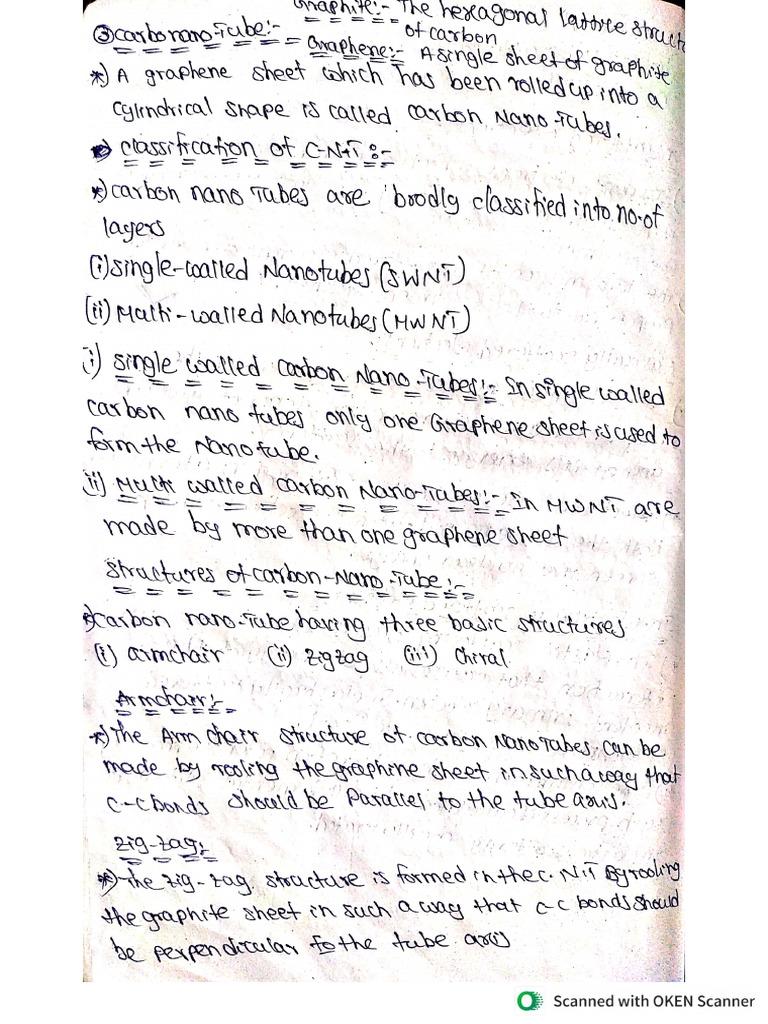 Graphite:- The hexagonal lattice struct
of carbon
③ carbonano-Tube:-
Graphene:- A single sheet of graphite
*) A graphene sheet which has been rolled up into a
cylindrical shape is called carbon Nano Tubes.
classification of C-N-T:-
*) carbon nano Tubes are brodly classified into no.of
layers
(i) single-walled Nanotubes (SWNT)
(ii) Multi-walled Nanotubes (MWNT)
i) single walled carbon Nano-Tubes:- In single walled
carbon nano tubes only one Graphene sheet is used to
form the Nano tube.
ii) Multi walled carbon Nano-Tubes:- In MWNT are
made by more than one graphene sheet
structures of carbon-Nano-Tube:-
*) carbon nano-Tube having three basic structures
(i) armchair (ii) zigzag (iii) chiral
Armchair:-
*) The Arm chair structure of carbon Nano Tubes can be
made by rooling the graphine sheet in such a way that
c-c bonds should be Parallel to the tube axis.
Zig-zag:-
*) The zig-zag structure is formed in the C.NiT By rooling
the graphite sheet in such a way that c-c bonds should
be perpendicular to the tube axis
Scanned with OKEN Scanner